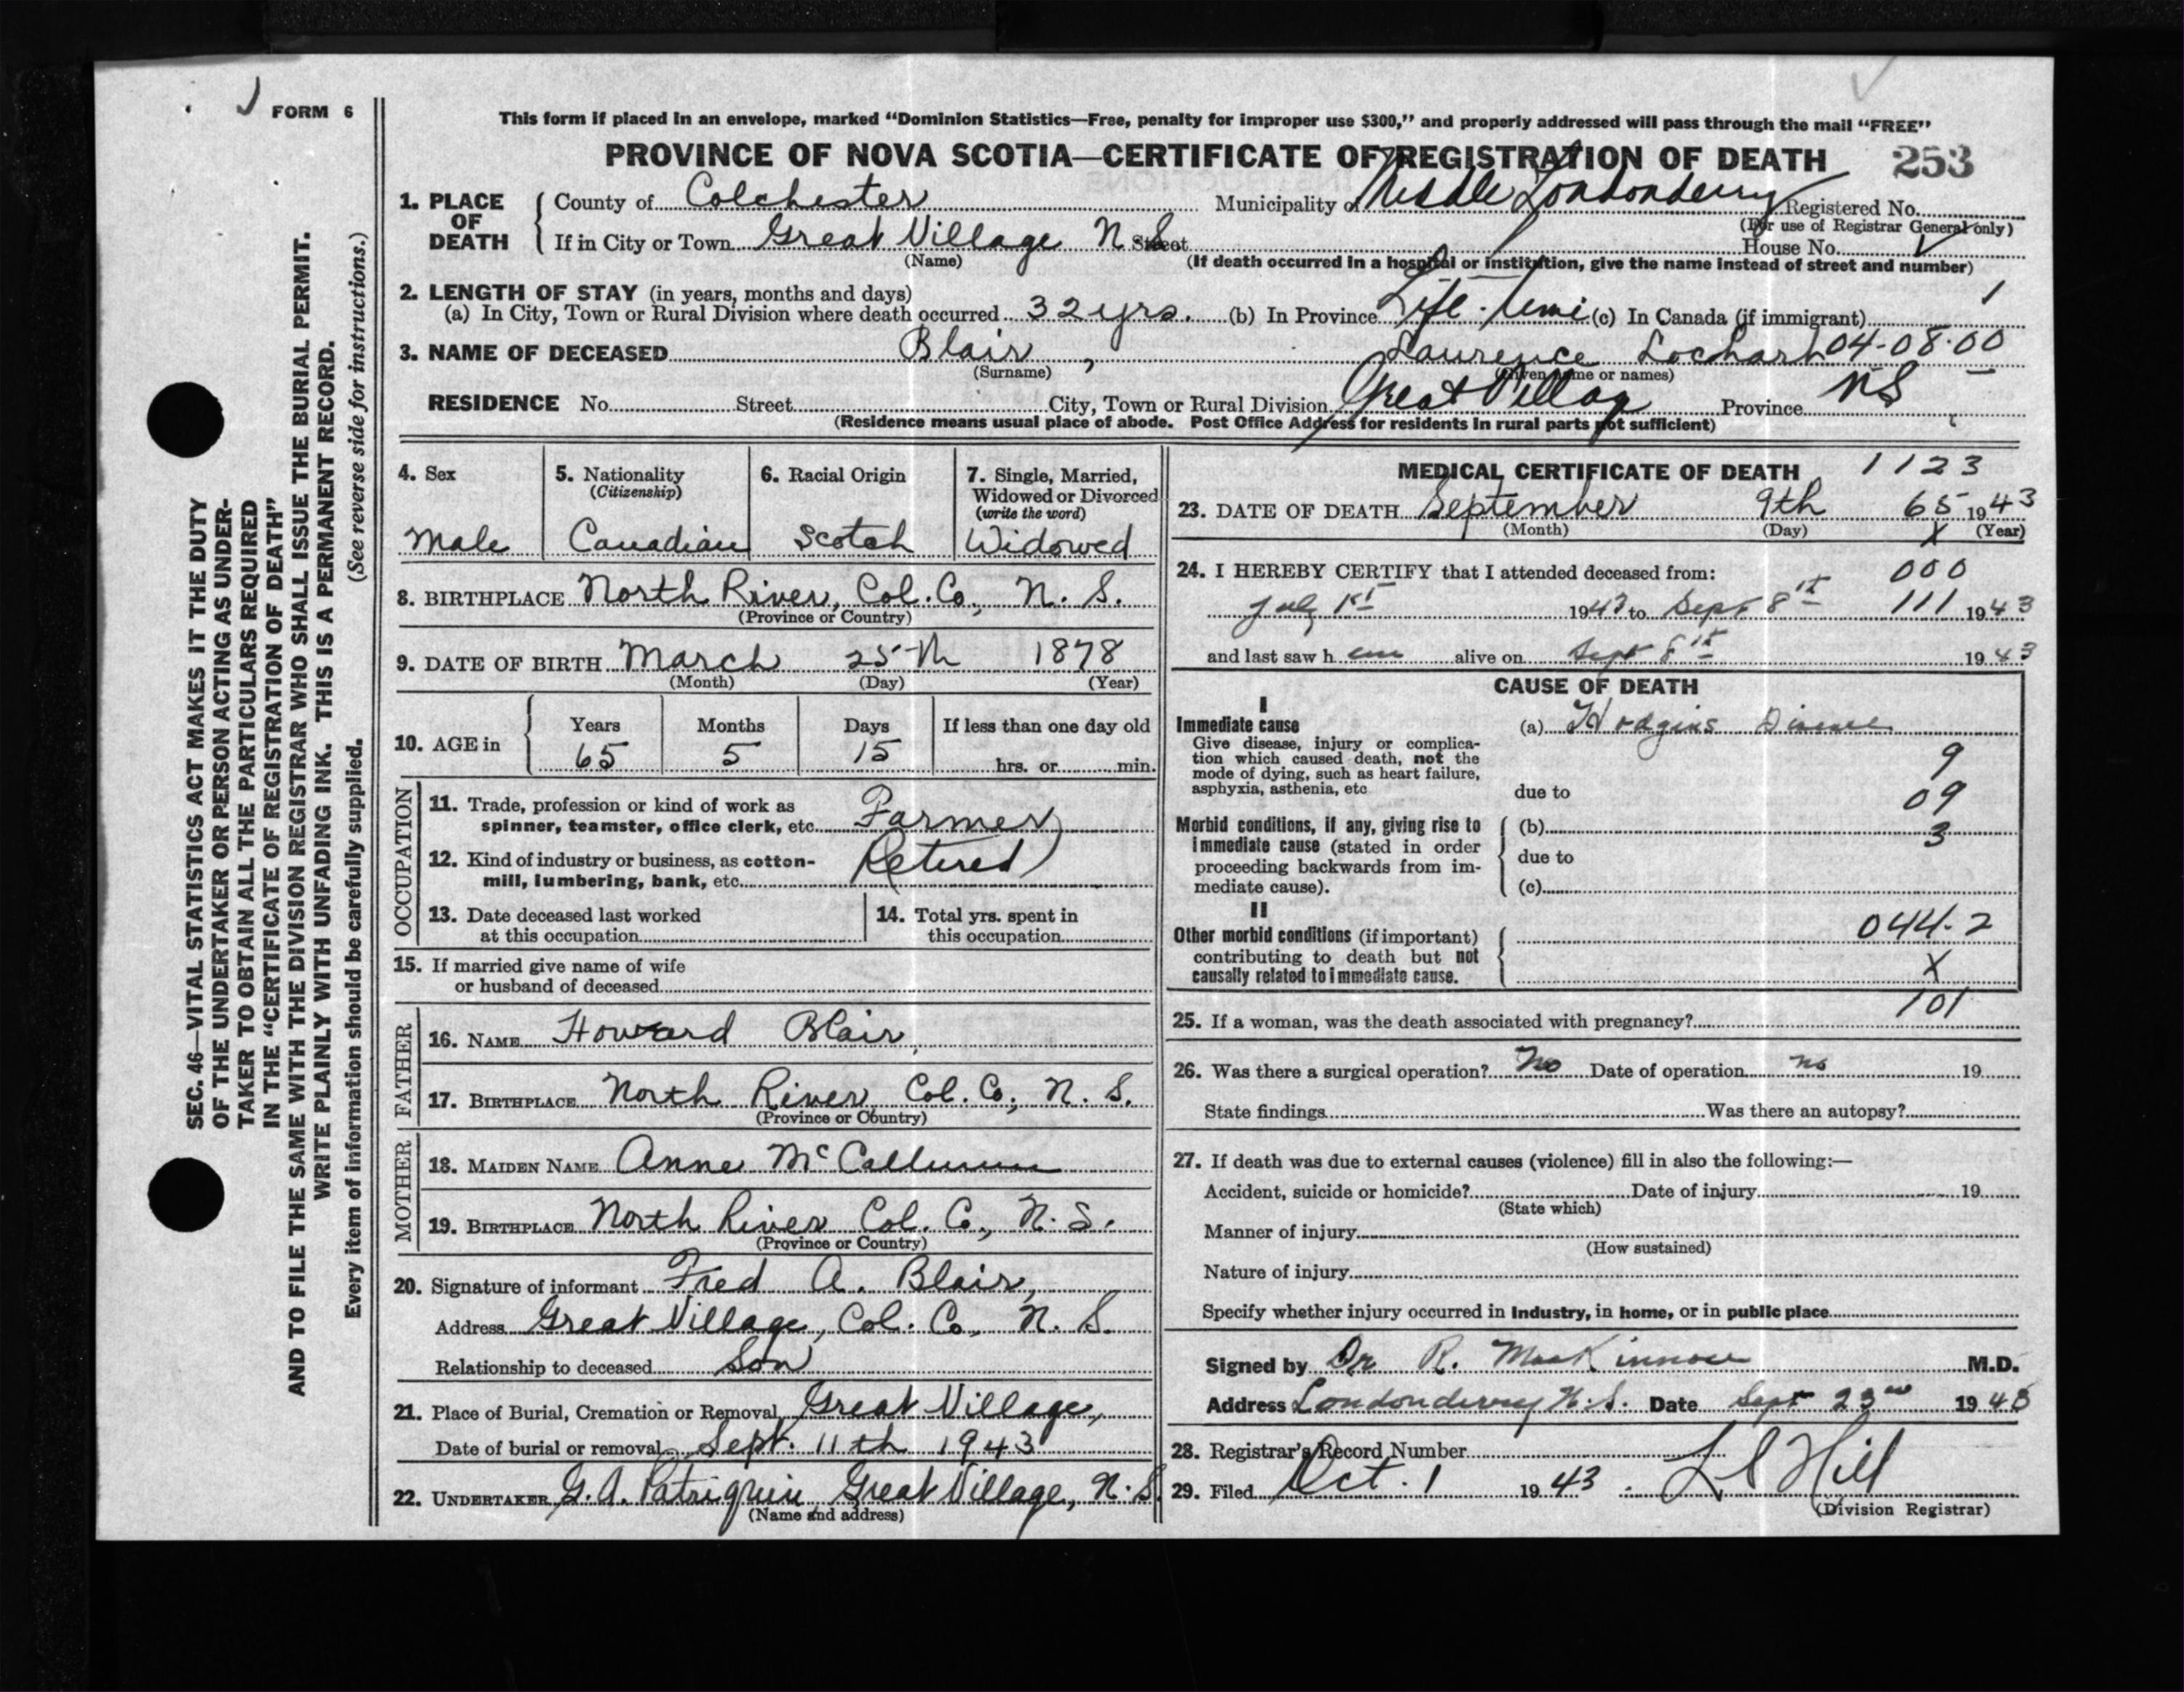 FORM 6
This form if placed in an envelope, marked “Dominion Statistics—Free, penalty for improper use $300,” and properly addressed will pass through the mail “FREE”
PROVINCE OF NOVA SCOTIA—CERTIFICATE OF REGISTRATION OF DEATH 253
1. PLACE OF DEATH
County of Colchester Municipality of Middle Londonderry Registered No.
(For use of Registrar General only)
If in City or Town Great Village N.S. Street House No.
(Name) (If death occurred in a hospital or institution, give the name instead of street and number)
2. LENGTH OF STAY (in years, months and days) 1
(a) In City, Town or Rural Division where death occurred 32 yrs. (b) In Province Life time (c) In Canada (if immigrant)
3. NAME OF DECEASED Blair, Laurence 04-08-00
(Surname) (Given name or names)
RESIDENCE No. Street City, Town or Rural Division Great Village Province NS
(Residence means usual place of abode. Post Office Address for residents in rural parts not sufficient)
4. Sex Male
5. Nationality (Citizenship) Canadian
6. Racial Origin Scotch
7. Single, Married, Widowed or Divorced (write the word) Widowed
8. BIRTHPLACE North River, Col. Co., N. S.
(Province or Country)
9. DATE OF BIRTH March 25th 1878
(Month) (Day) (Year)
10. AGE in Years Months Days If less than one day old
65 5 15 hrs. or min.
OCCUPATION
11. Trade, profession or kind of work as
spinner, teamster, office clerk, etc. Farmer
12. Kind of industry or business, as cotton-
mill, lumbering, bank, etc. (Retired)
13. Date deceased last worked
at this occupation
14. Total yrs. spent in
this occupation
15. If married give name of wife
or husband of deceased
FATHER
16. NAME Howard Blair
17. BIRTHPLACE North River, Col. Co., N. S.
(Province or Country)
MOTHER
18. MAIDEN NAME Anne McCallum
19. BIRTHPLACE North River Col. Co., N. S.
(Province or Country)
20. Signature of informant Fred A. Blair,
Address Great Village, Col. Co., N. S.
Relationship to deceased Son
21. Place of Burial, Cremation or Removal Great Village,
Date of burial or removal Sept. 11th 1943
22. UNDERTAKER G. A. Patriquin Great Village, N. S.
(Name and address)
MEDICAL CERTIFICATE OF DEATH 1123
23. DATE OF DEATH September 9th 65 1943
(Month) (Day) X (Year)
24. I HEREBY CERTIFY that I attended deceased from: 000
July 1st 1943 to Sept 8th 111 1943
and last saw h im alive on Sept 8th 1943
CAUSE OF DEATH
I
Immediate cause (a) Hodgins Disease
Give disease, injury or complica-
tion which caused death, not the 9
mode of dying, such as heart failure,
asphyxia, asthenia, etc due to 09
Morbid conditions, if any, giving rise to (b) 3
immediate cause (stated in order due to
proceeding backwards from im-
mediate cause). (c)
II
Other morbid conditions (if important) 044-2
contributing to death but not
causally related to immediate cause. X
101
25. If a woman, was the death associated with pregnancy?
26. Was there a surgical operation? No Date of operation no 19
State findings Was there an autopsy?
27. If death was due to external causes (violence) fill in also the following:—
Accident, suicide or homicide? Date of injury 19
(State which)
Manner of injury
(How sustained)
Nature of injury
Specify whether injury occurred in industry, in home, or in public place
Signed by Dr R. MacKinnon M.D.
Address Londonderry N.S. Date Sept 23rd 1943
28. Registrar's Record Number
29. Filed Oct. 1 1943. L S Hill
(Division Registrar)
SEC. 46—VITAL STATISTICS ACT MAKES IT THE DUTY
OF THE UNDERTAKER OR PERSON ACTING AS UNDER-
TAKER TO OBTAIN ALL THE PARTICULARS REQUIRED
IN THE “CERTIFICATE OF REGISTRATION OF DEATH”
AND TO FILE THE SAME WITH THE DIVISION REGISTRAR WHO SHALL ISSUE THE BURIAL PERMIT.
WRITE PLAINLY WITH UNFADING INK. THIS IS A PERMANENT RECORD.
Every item of information should be carefully supplied. (See reverse side for instructions.)